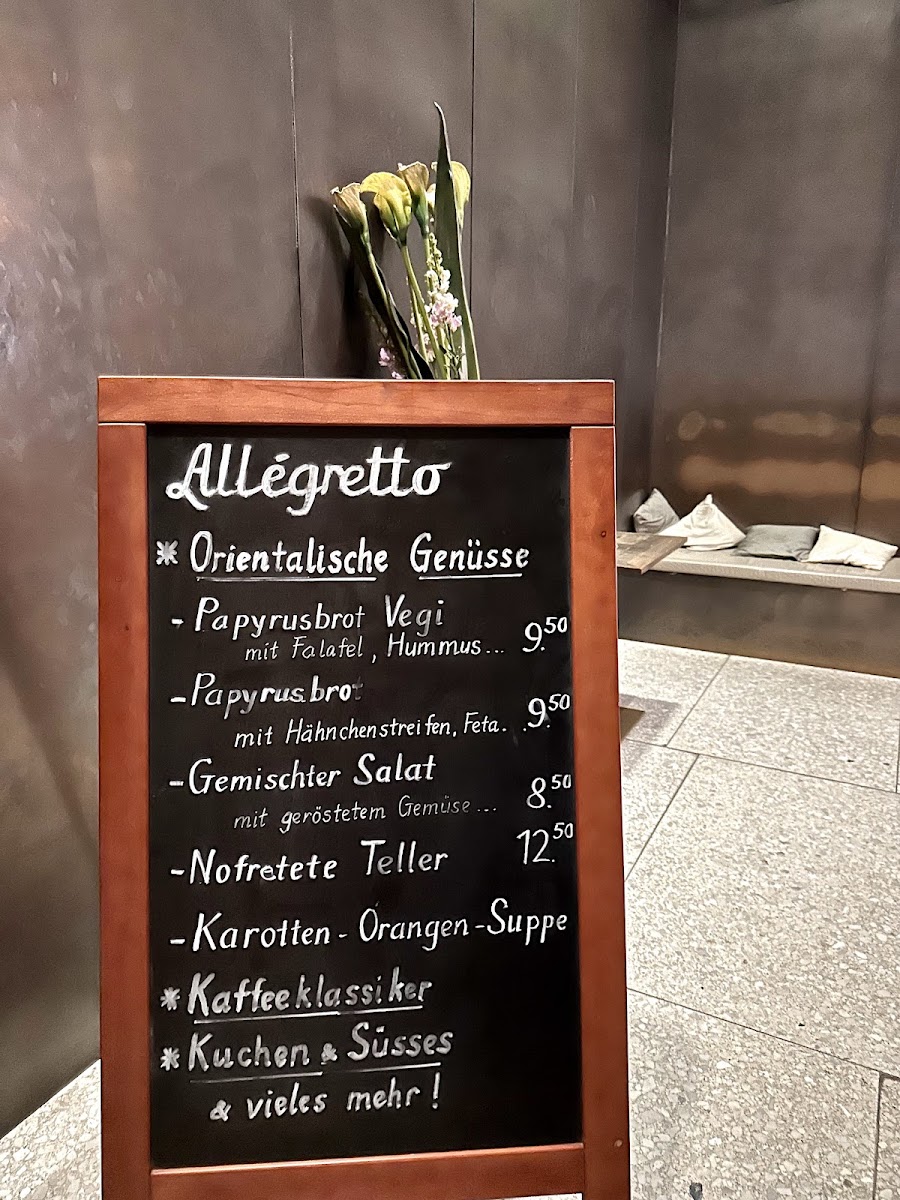 Allégretto
* Orientalische Genüsse
- Papyrusbrot Vegi
mit Falafel, Hummus... 9.50
- Papyrusbrot
mit Hähnchenstreifen, Feta.. 9.50
- Gemischter Salat
mit geröstetem Gemüse... 8.50
- Nofretete Teller 12.50
- Karotten-Orangen-Suppe
* Kaffeeklassiker
* Kuchen & Süsses
& vieles mehr!